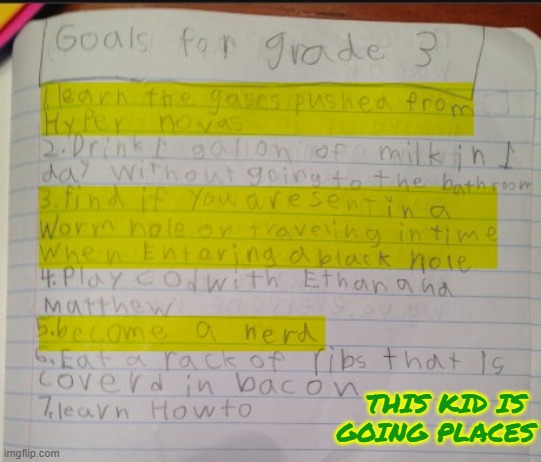 Goals for grade 3
1. learn the gases pushed from
Hyper novas
2. Drink 1 gallon of milk in 1
day without going to the bathroom
3. find if you are sent in a
worm hole or traveling in time
when Entering a black hole
4. Play cod with Ethan and
Matthew
5. become a nerd
6. Eat a rack of ribs that is
coverd in bacon
7. learn How to
THIS KID IS
GOING PLACES
imgflip.com